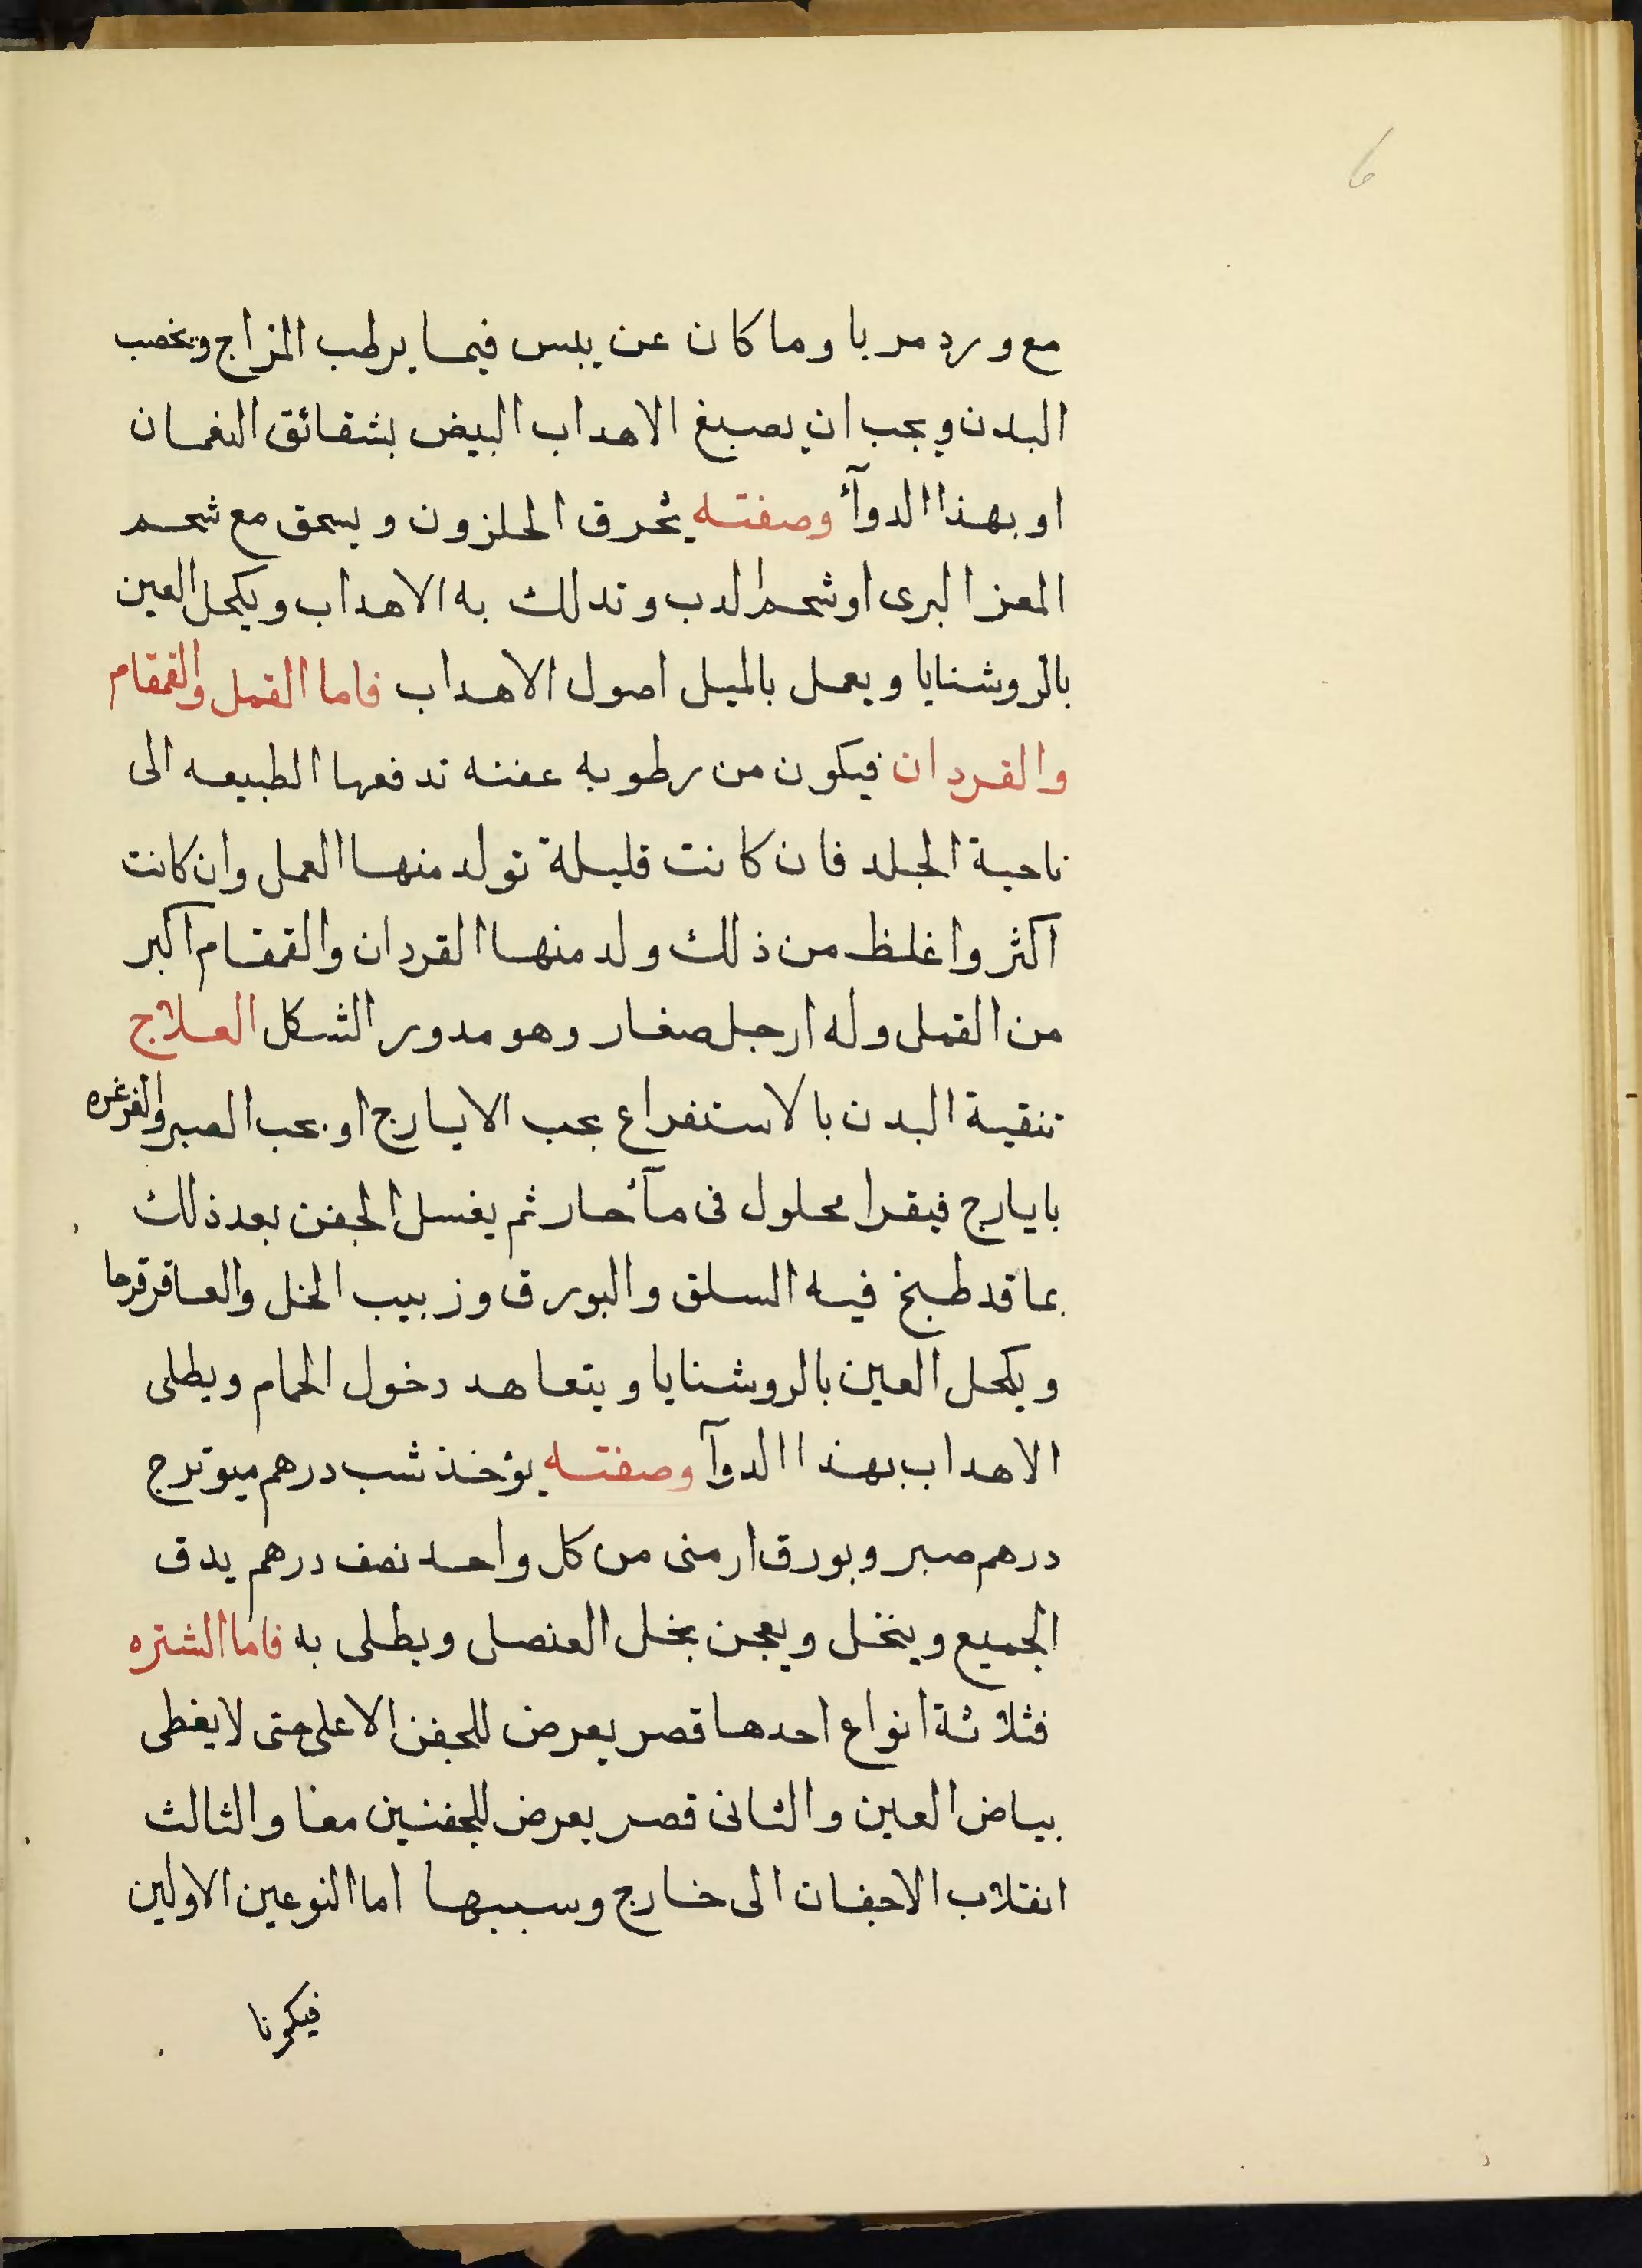 6
مع ورد مربا وما كان عن يبس فيما يرطب المزاج ويخصب
البدن ويجب ان يصبغ الاهداب البيض بشقائق النعمان
او بهذا الدوآء وصفته يحرق الحلزون ويسحق مع شحم
المعز البرى او شحم الدب وتدلك به الاهداب ويكحل العين
بالروشنايا ويعمل بالميل اصول الاهداب فاما القمل والقمقام
والقردان فيكون من رطوبه عفنه تدفعها الطبيعه الى
ناحية الجلد فان كانت قليلة تولد منها العمل وان كانت
اكثر واغلظ من ذلك ولد منها القردان والقمقام اكبر
من القمل وله ارجل صغار وهو مدور الشكل العلاج
تنقية البدن بالاستفراغ بحب الايارج او بحب الصبر والغرغره
بايارج فيقرا محلول فى مآء حار ثم يغسل الجفن بعد ذلك
بما قد طبخ فيه السلق والبورق وزبيب الخل والعاقرقرحا
ويكحل العين بالروشنايا ويتعاهد دخول الحمام ويطلى
الاهداب بهذا الدوآ وصفته يؤخذ شب درهم ميوترج
درهم صبر وبورق ارمنى من كل واحد نصف درهم يدق
الجميع وينخل ويعجن بخل العنصل ويطلى به فاما الشتره
فثلاثة انواع احدها قصر يعرض للجفن الاعلى حتى لا يغطى
بياض العين والثانى قصر يعرض للجفنين معا والثالث
انقلاب الاجفان الى خارج وسببها اما النوعين الاولين
فيكونا